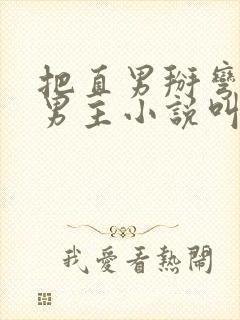 把直男掰彎
男主小說叫
我愛看熱鬧